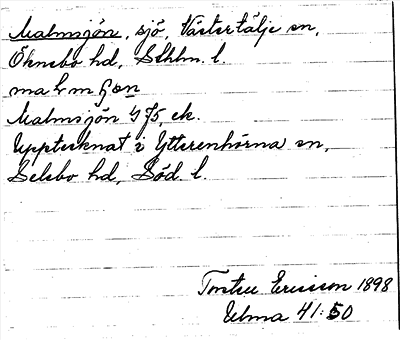 Malmsjön, sjö, Västertälje sn,
Öknebo hd, Sthlm. l.
Malmsjön 475, ek.
Upptecknat i Ytterenhörna sn,
Selebo hd, Söd. l.
Torsten Ericsson 1898
Ulma 41:50